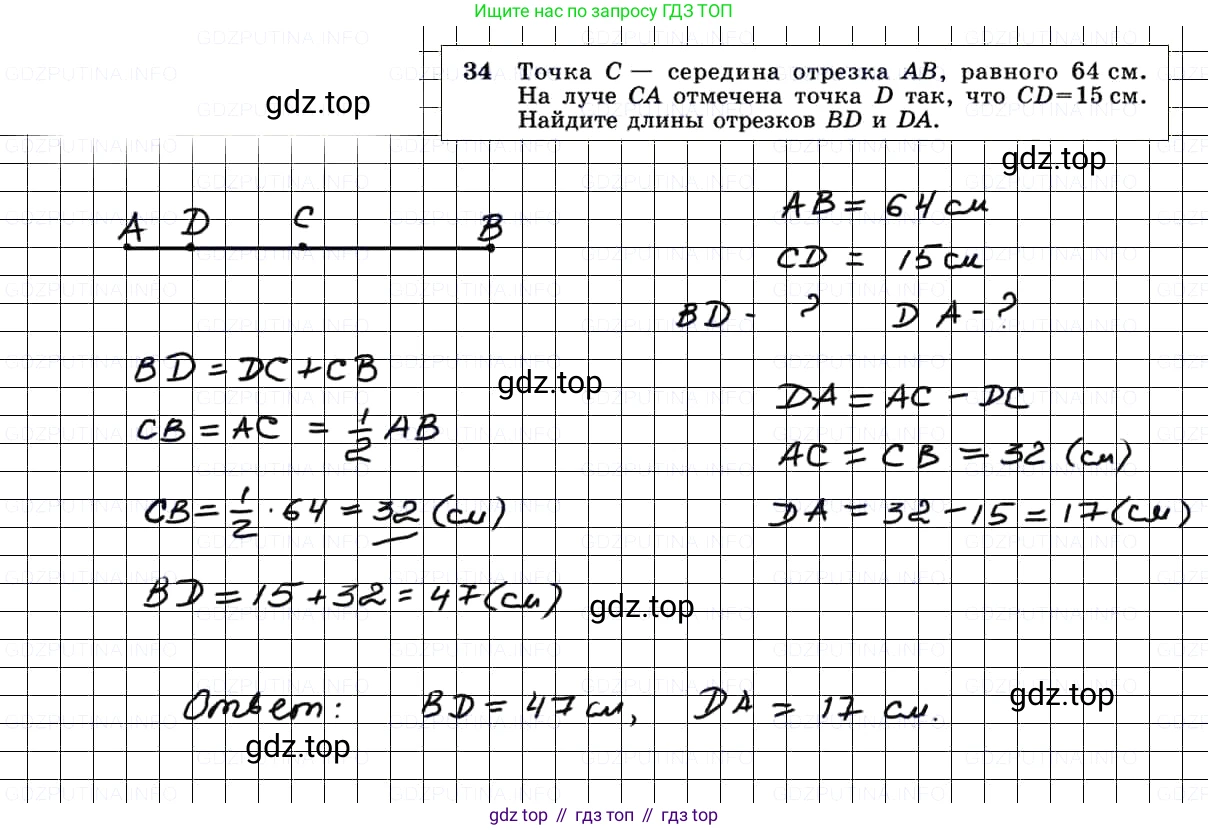 Ищите нас по запросу ГДЗ ТОП
34 Точка C — середина отрезка AB, равного 64 см.
На луче CA отмечена точка D так, что CD=15 см.
Найдите длины отрезков BD и DA.
gdz.top
gdz.top
A D C B
AB = 64 см
CD = 15 см
BD - ? DA - ?
BD = DC + CB
gdz.top
DA = AC - DC
CB = AC = 1/2 AB
AC = CB = 32 (см)
CB = 1/2 · 64 = 32 (см)
DA = 32 - 15 = 17 (см)
BD = 15 + 32 = 47 (см)
gdz.top
Ответ: BD = 47 см, DA = 17 см.
gdz.top
gdz.top
gdz top // гдз топ // гдз top
GDZPUTINA.INFO